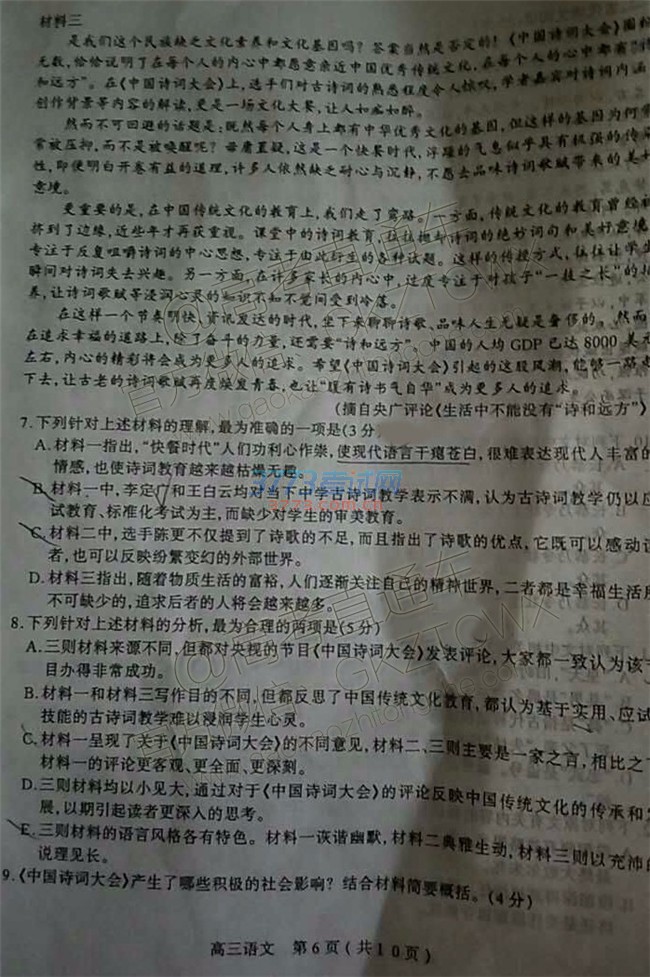 材料三
是我们这个民族缺乏文化素养和文化基因吗？答案当然是否定的！《中国诗词大会》圈粉
无数，恰恰说明了在每个人的内心中都愿意亲近中国优秀传统文化，在每个人的心中都有“诗
和远方”。在《中国诗词大会》上，选手们对古诗词的熟悉程度令人惊叹，学者嘉宾对诗词内涵
创作背景等内容的解读，更是一场文化大餐，让人如痴如醉。
然而不可回避的话题是：既然每个人身上都有中华优秀文化的基因，但这样的基因为何常
常被压抑，而不是被唤醒呢？毋庸置疑，这是一个快餐时代，浮躁的气息似乎具有极强的传染
性，即便明白开卷有益的道理，许多人依然缺乏耐心与沉静，不愿去品味诗词歌赋带来的美
意境。
更重要的是，在中国传统文化的教育上，我们走了弯路。一方面，传统文化的教育曾经
挤到了边缘，近些年才再获重视。课堂中的诗词教育，往往抛却诗词的绝妙词句和美好意境
专注于反复咀嚼诗词的中心思想，专注于由此衍生的各种试题。这样的传授方式，往往让学生
瞬间对诗词失去兴趣。另一方面，在许多家长的内心中，过度专注于对孩子“一技之长”的
养，让诗词歌赋等浸润心灵的知识不知不觉间受到冷落。
在这样一个节奏明快、资讯发达的时代，坐下来聊聊诗歌、品味人生无疑是奢侈的。然而
在追求幸福的道路上，除了奋斗的力量，还需要“诗和远方”、中国的人均GDP已达8000美元
左右，内心的精彩将会成为更多人的追求。希望《中国诗词大会》引起的这股风潮，能够一路
下去，让古老的诗词歌赋再度焕发青春，也让“腹有诗书气自华”成为更多人的追求。
（摘自央广评论《生活中不能没有“诗和远方”》
7.下列针对上述材料的理解，最为准确的一项是(3分)
A.材料一指出，“快餐时代”人们功利心作祟，使现代语言干瘪苍白，很难表达现代人丰富的
情感，也使诗词教育越来越枯燥无趣。
B.材料一中，李定广和王白云均对当下中学古诗词教学表示不满，认为古诗词教学仍以应
试教育、标准化考试为主，而缺少对学生的审美教育。
C.材料二中，选手陈更不仅提到了诗歌的不足，而且指出了诗歌的优点，它既可以感动读
者，也可以反映纷繁变幻的外部世界。
D.材料三指出，随着物质生活的富裕，人们逐渐关注自己的精神世界，二者都是幸福生活
不可缺少的，追求后者的人将会越来越多。
8.下列针对上述材料的分析，最为合理的两项是(5分)
A.三则材料来源不同，但都对央视的节目《中国诗词大会》发表评论，大家都一致认为该
目办得非常成功。
B.材料一和材料三写作目的不同，但都反思了中国传统文化教育，都认为基于实用、应试
技能的古诗词教学难以浸润学生心灵。
C.材料一呈现了关于《中国诗词大会》的不同意见，材料二、三则主要是一家之言，相比之
材料一的评论更客观、更全面、更深刻。
D.三则材料均以小见大，通过对于《中国诗词大会》的评论反映中国传统文化的传承和发
展，以期引起读者更深入的思考。
E.三则材料的语言风格各有特色。材料一诙谐幽默，材料二典雅生动，材料三则以充沛的
说理见长。
9.《中国诗词大会》产生了哪些积极的社会影响？结合材料简要概括。(4分)
高三语文 第6页(共10页)